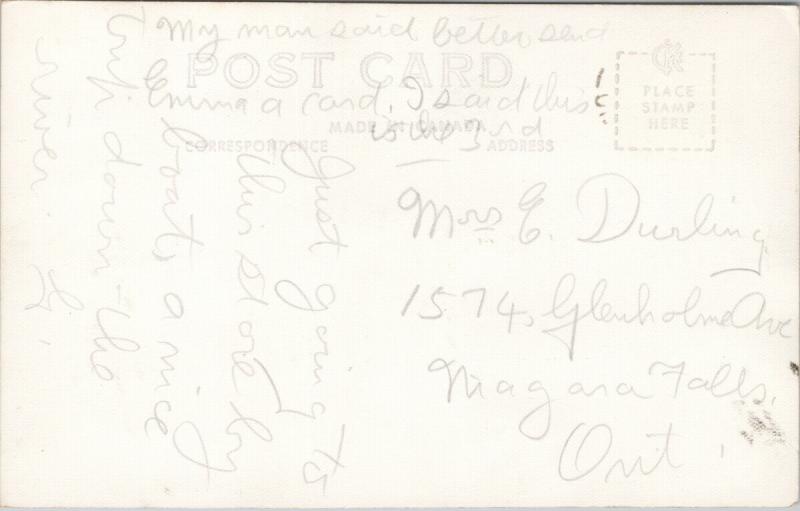 My man said better send
POST CARD
Emma a card, I said this
is the 3rd
MADE IN CANADA
CORRESPONDENCE
ADDRESS
PLACE
STAMP
HERE
Just going to
this store by
boats a nice
trip down the
river.
Mrs E. Durling
1574, Glenholme Ave
Niagara Falls,
Ont.